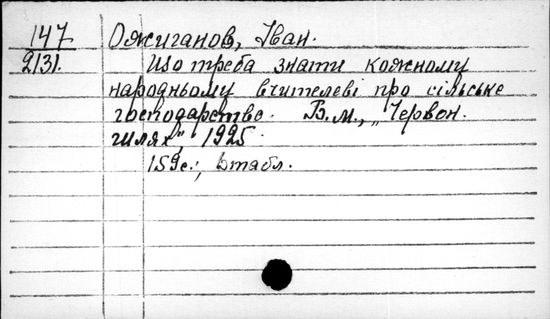 147 Ожиганов, Іван.
2131. Що треба знати кожному
народньому вчителеві про сільське
господарство. Б.м., „Червон.
шлях", 1925.
159с.; табл.